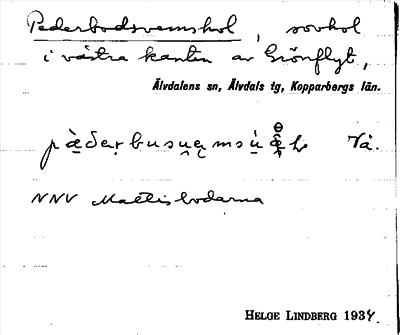 Pederbodsvemshol, sovhol
i västra kanten av Grönflyt,
Älvdalens sn, Älvdals tg, Kopparbergs län.
Vå.
NNV Mattisbodarna
HELGE LINDBERG 1934.